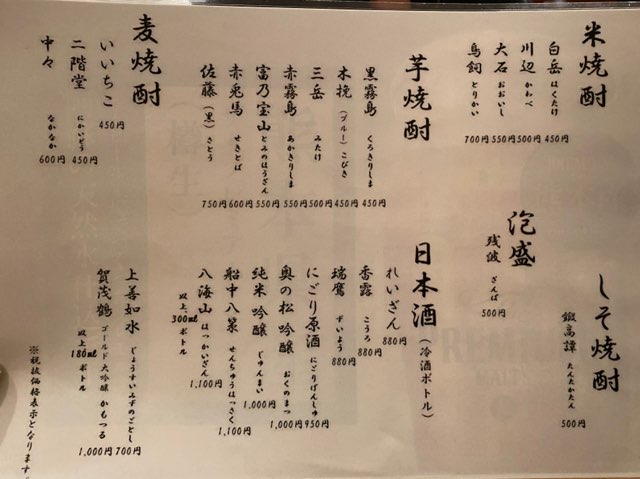 米焼酎
白岳 はくたけ 450円
川辺 かわべ 500円
大石 おおいし 550円
鳥飼 とりかい 700円
芋焼酎
黒霧島 くろきりしま 450円
木挽(ブルー) こびき 450円
三岳 みたけ 500円
赤霧島 あかきりしま 550円
富乃宝山 とみのほうざん 550円
赤兎馬 せきとば 600円
佐藤(黒) さとう 750円
麦焼酎
いいちこ 450円
二階堂 にかいどう 450円
中々 なかなか 600円
しそ焼酎
鍛高譚 たんたかたん 500円
泡盛
残波 ざんぱ 500円
日本酒(冷酒ボトル)
れいざん 880円
香露 こうろ 880円
瑞鷹 ずいよう 880円
にごり原酒 にごりげんしゅ 950円
奥の松 吟醸 おくのまつ 1,000円
純米 吟醸 じゅんまい 1,000円
船中八策 せんちゅうはっさく 1,100円
八海山 はっかいざん 1,100円
以上、300mlボトル
上善如水 じょうすいみずのごとし 700円
賀茂鶴 ゴールド 大吟醸 かもつる 1,000円
以上 180ml ボトル
※税抜価格表示となります。